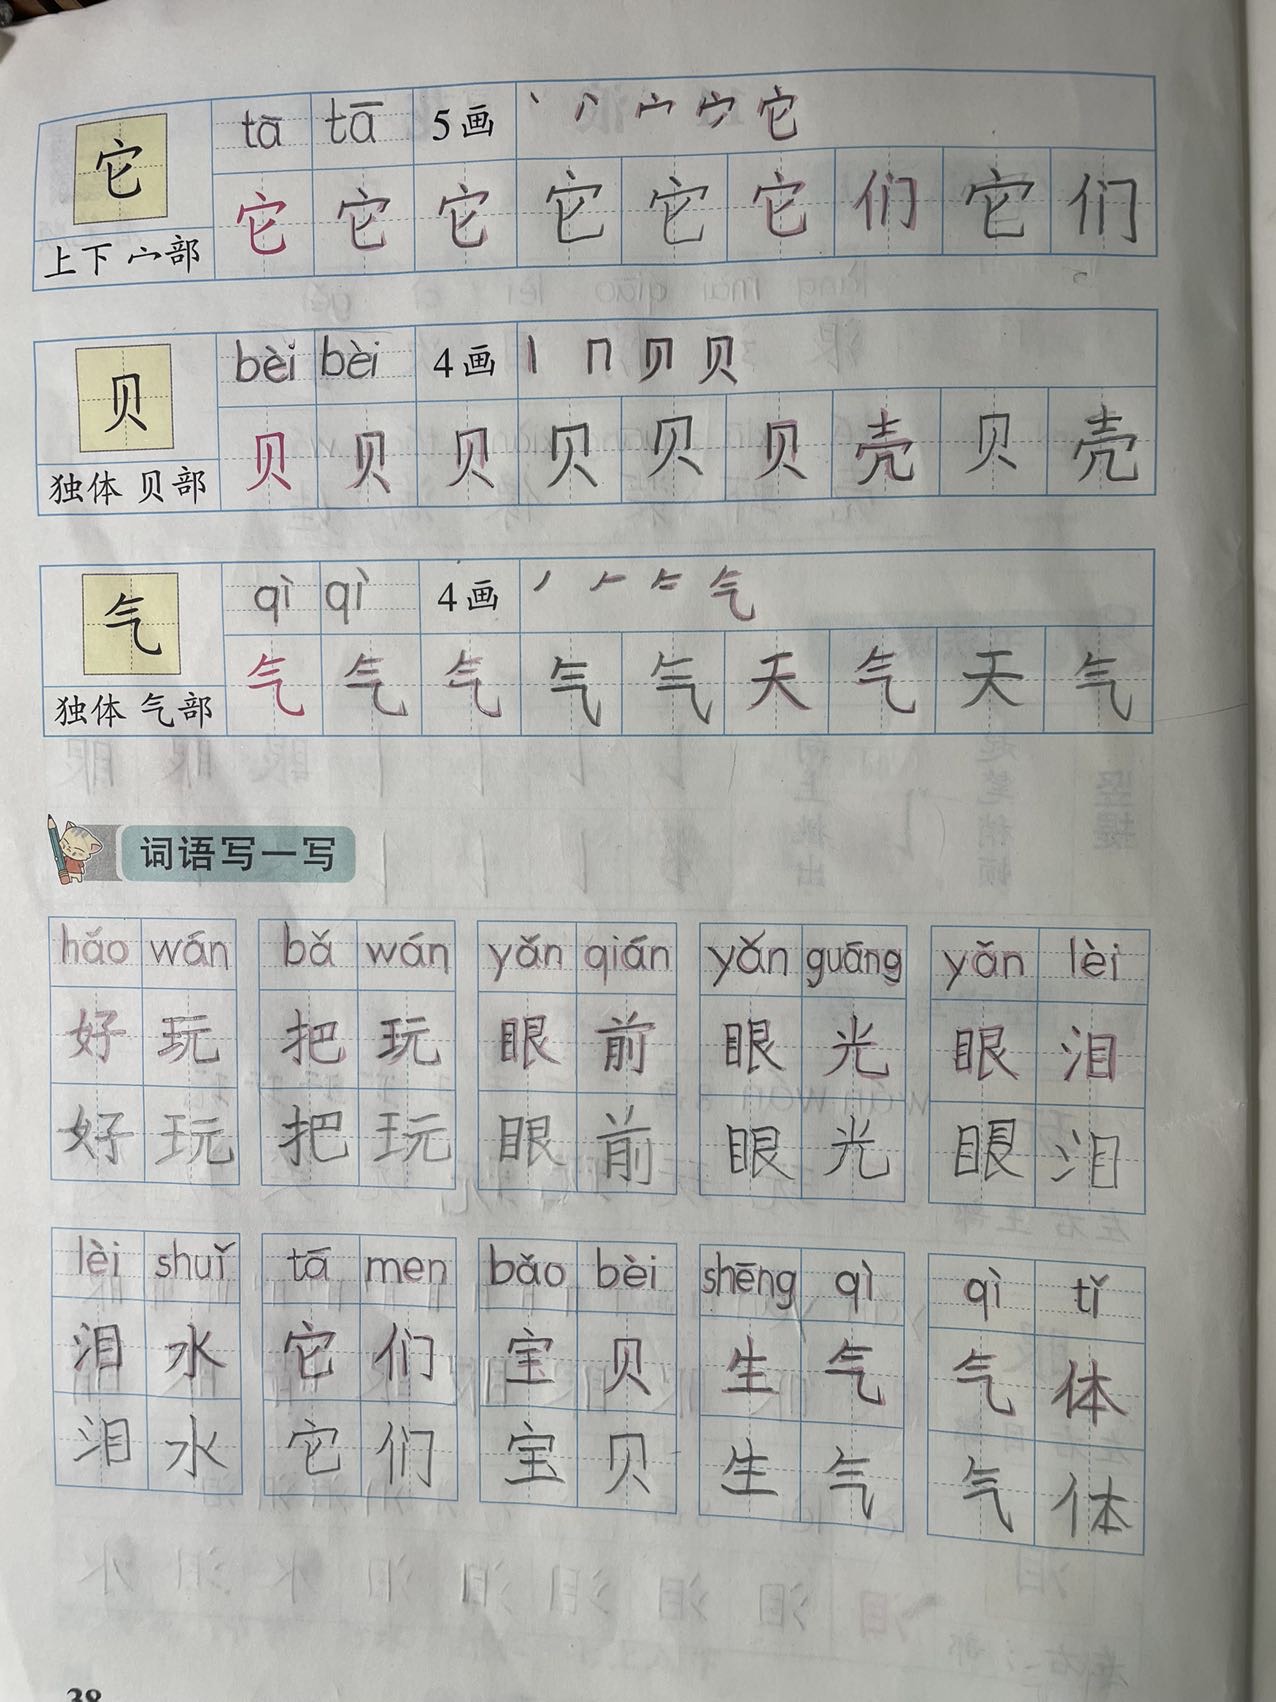 它 tā tā 5画 丶 丷 宀 宀 它
它 它 它 它 它 它 们 它 们
上下 宀部
贝 bèi bèi 4画 丨 冂 贝 贝
贝 贝 贝 贝 贝 贝 壳 贝 壳
独体 贝部
气 qì qì 4画 丿 𠂉 气
气 气 气 气 气 天 气 天 气
独体 气部
词语写一写
hǎo wán bǎ wán yǎn qián yǎn guāng yǎn lèi
好玩 把玩 眼前 眼光 眼泪
好玩 把玩 眼前 眼光 眼泪
lèi shuǐ tā men bǎo bèi shēng qì qì tǐ
泪水 它们 宝贝 生气 气体
泪水 它们 宝贝 生气 气体
38